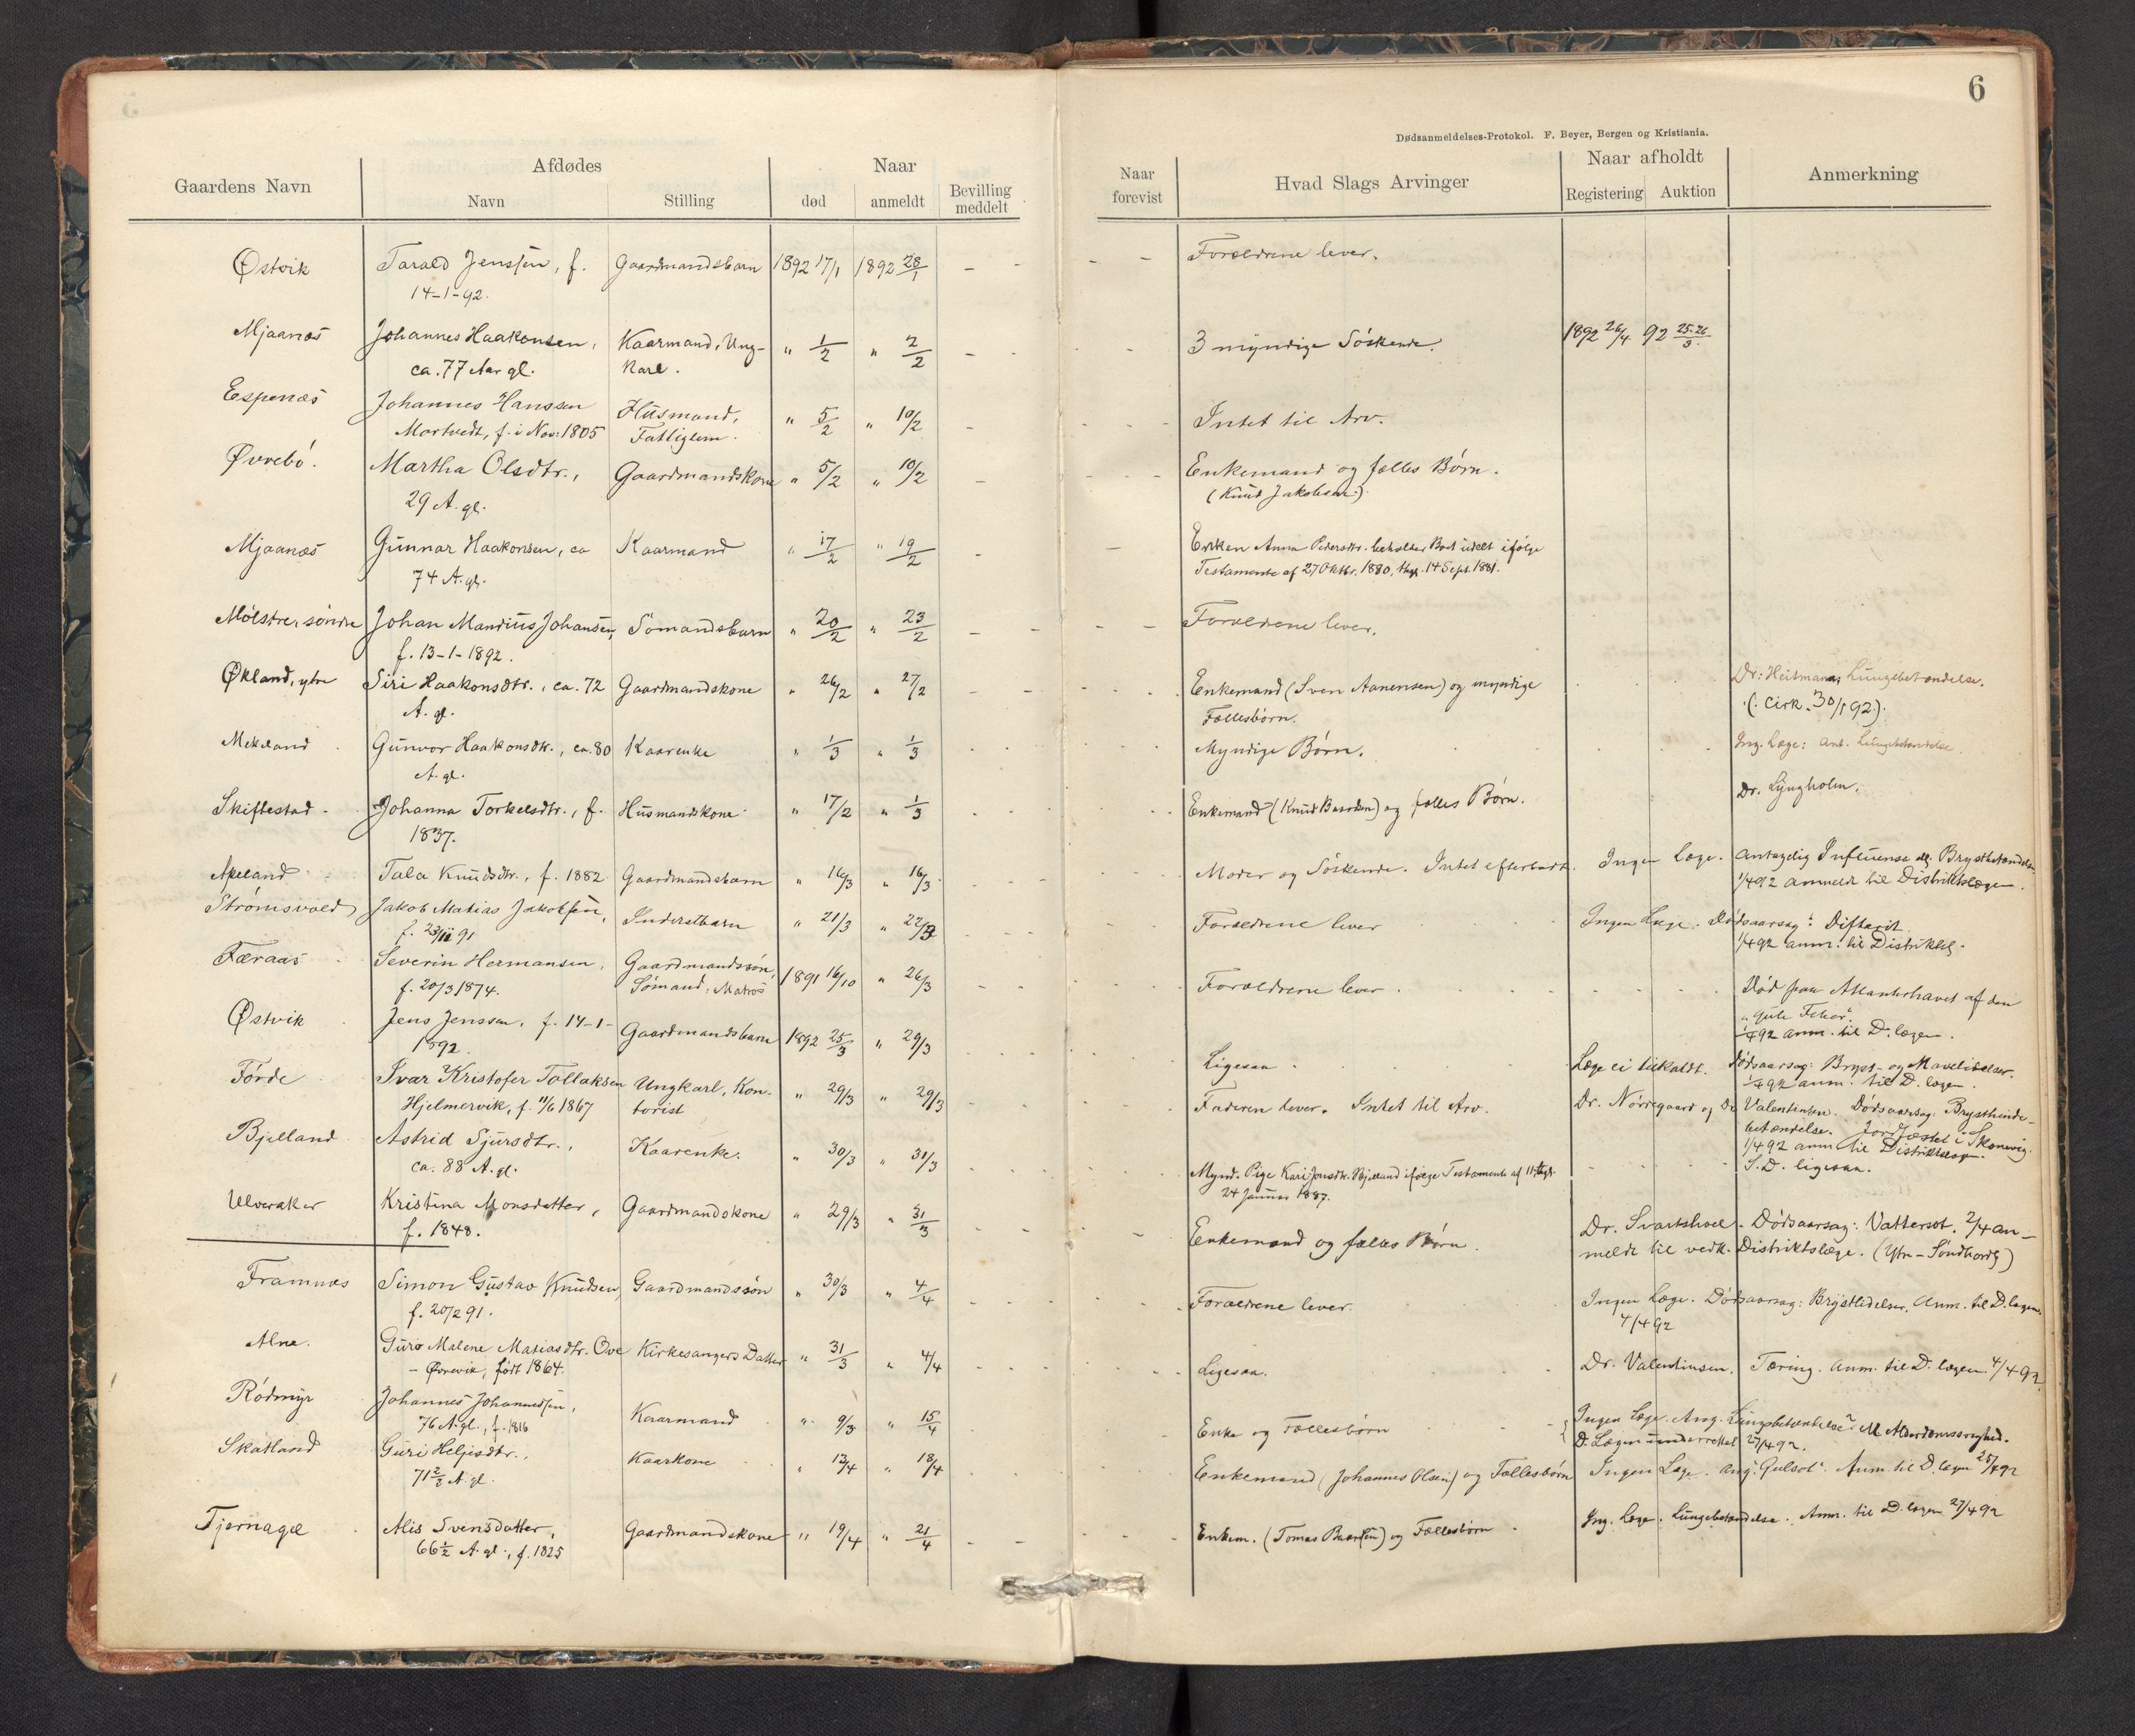 6
Dødsanmeldelses-Protokol. F. Beyer, Bergen og Kristiania.
Gaardens Navn
Afdødes
Navn
Stilling
Naar
død
anmeldt
Bevilling
meddelt
Naar
forevist
Hvad Slags Arvinger
Naar afholdt
Registering
Auktion
Anmerkning
Østvik Tarald Jenssen, f. Gaardmandsbarn 1892 17/1 1892 28/1 - - - - Forældrene lever.
14-1-92.
Mjaanæs Johannes Haakonsen, Kaarmand, Ung- " 1/2 " 2/2 - 3 myndige Söskende. 1892 26/4 92 25-26/3.
ca. 77 Aar gl. karl.
Espenæs Johannes Hanssen Husmand, " 5/2 " 10/2 - Intet til Arv.
Mortvedt, f. i Nov: 1805 Fattiglem.
Øvrebö. Martha Olsdtr., Gaardmandskone " 5/2 " 10/2 - Enkemand og fælles Børn.
29 A. gl. (Knud Jakobsen).
Mjaanæs Gunnar Haakonsen, ca Kaarmand " 17/2 " 19/2 - Enken Anna Pedersdtr. beholder Boet udelt ifølge
74 A. gl. Testamente af 27 Oktbr. 1880, thgl. 14 Sept. 1881.
Mölstre, söndre Johan Mandius Johansen, Sömandsbarn " 20/2 " 23/2 - - - - Forældrene lever.
f. 13-1-1892.
Økland, ytre Siri Haakonsdtr., ca. 72 Gaardmandskone " 26/2 " 27/2 - - Enkemand (Sven Aanensen) og myndige Dr: Heitmann; Lungebetændelse.
A. gl. Fællesbörn. (Cirk. 30/1 92).
Mekeland Gunvor Haakonsdtr., ca. 80 Kaarenke " 1/3 " 1/3 Myndige Börn. Ing. Læge: ant. Lungebetændelse.
A. gl.
Skiftestad Johanna Torkelsdtr., f. Husmandskone " 17/2 " 1/3 Enkemand (Knud Baardsen) og fælles Börn. Dr. Lyngholm.
1837.
Apeland Tala Knudsdtr., f. 1882 Gaardmandsbarn " 16/3 " 16/3 Moder og Söskende. Intet efterladt. Ingen Læge. Antagelig Influensa og Brystbetændelse
1/4 92 anmeldt til Distriktslægen.
Strömsvold Jakob Matias Jakobsen, Inderstbarn " 21/3 " 22/3 Forældrene lever Ingen Læge. Dødsaarsag: Difterit.
f. 23/11 91 1/4 92 anm. til Distriktslg.
Færaas Severin Hermansen, Gaardmandssön, 1891 16/10 " 26/3 Forældrene lever. Död paa Atlanterhavet af den
f. 20/3 1874. Sömand, Matros "gule Feber".
1/4 92 anm. til D. lægen.
Østvik Jens Jenssen, f. 14-1- Gaardmandsbarn 1892 25/3 " 29/3 Ligesaa. Læge ei tilkaldt. Dödsaarsag: Bryst- og Mavelidelser.
1892. 1/4 92 anm. til D. lægen.
Förde Ivar Kristofer Tollaksen Ungkarl, Kon- " 29/3 " 29/3 Faderen lever. Intet til Arv. Dr. Nörregaard og Dr Valentinsen. Dödsaarsag: Brysthinde-
Hjelmervik, f. 11/6 1867 torist betændelse. Jordfæstet i Skonevig.
1/4 92 anm til Distriktslæge.
Bjelland Astrid Sjursdtr., Kaarenke. " 30/3 " 31/3 Mynd. Pige Kari Jonsdtr. Bjelland ifølge Testamente af 11, thgl. S. D. ligesaa.
ca. 88 A. gl. 24 Januar 1887.
Ulveraker Kristina Monsdatter, Gaardmandskone " 29/3 " 31/3 - - - Enkemand og fælles Börn. Dr. Svartshoel. Dödsaarsag: Vattersot. 2/4 an-
f. 1848. meldt til vedk. Distriktslæge. (Ytre-Söndhordl)
Framnæs Simon Gustav Knudsen, Gaardmandssön " 30/3 " 4/4 Forældrene lever. Ingen Læge. Dödsaarsag: Brystlidelser. Anm. til D. lægen.
f. 20/2 91. 4/4 92
Alne. Guro Malene Matiasdtr. Ove Kirkesangers Datter " 31/3 " 4/4 Ligesaa. Dr. Valentinsen. Tæring. Anm. til D. lægen 4/4 92.
- Övrevik, födt 1864.
Rödmyr Johannes Johannessen, Kaarmand " 9/3 " 15/4 Enke og Fællesbörn Ingen Læge. Ang. Lungebetændelse M Alderdomssvaghed.
76 A. gl., f. 1816 D. Lægen underrettet 27/4 92.
Skatland Guri Heljesdtr., Kaarkone " 12/4 " 18/4 Enkemand (Johannes Olsen) og Fællesbörn Ingen Læge. Ang. "Gulsot". Anm. til D. lægen 25/4 92
71 2/3 A. gl.
Tjernagel Alis Svensdatter, Gaardmandskone " 19/4 " 21/4 - - Enkem. (Tomas Baardsen) og Fællesbörn. Ing. Læge. Lungebetændelse. Anm. til D. lægen 27/4 92
66 1/2 A. gl., f. 1825